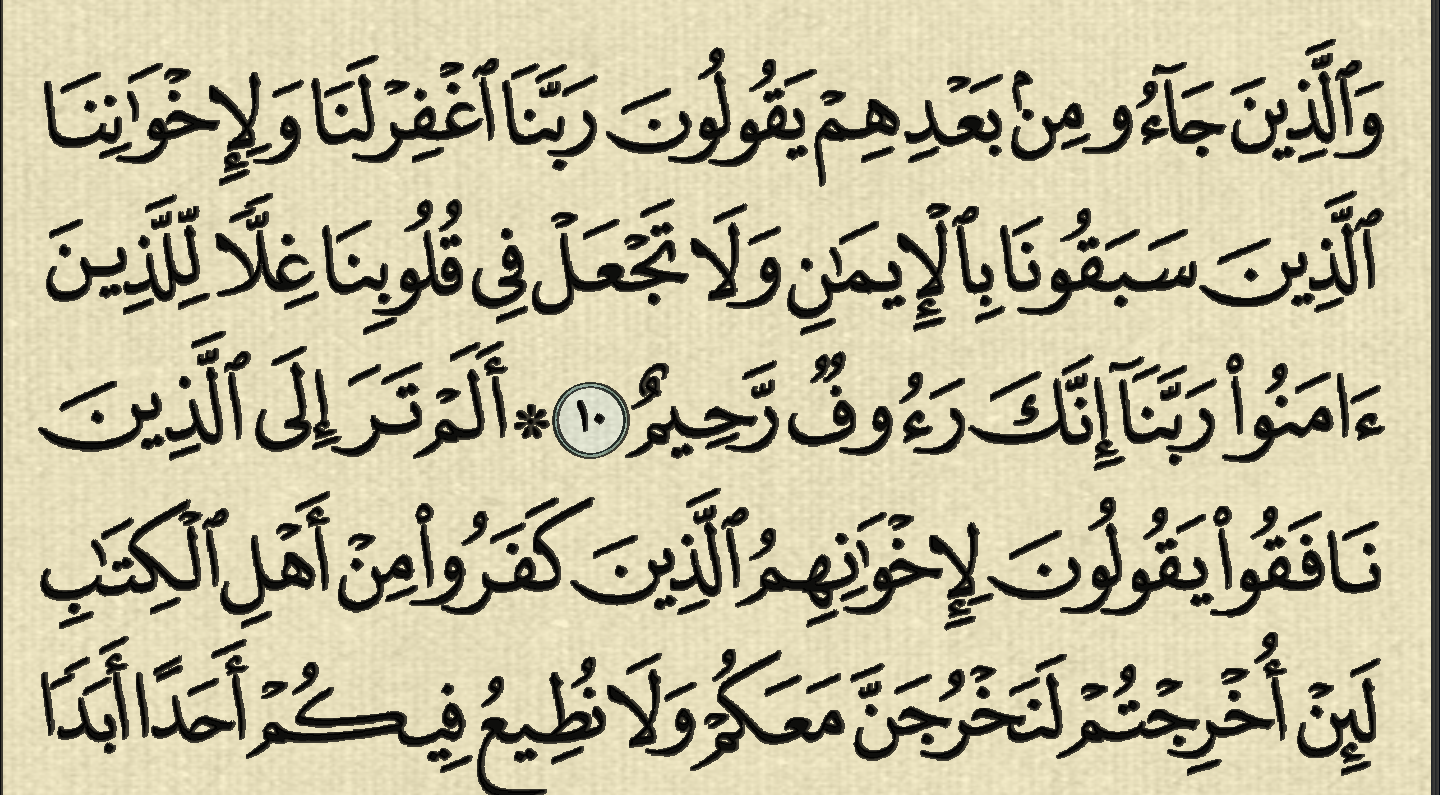 وَٱلَّذِينَ جَآءُو مِنۢ بَعۡدِهِمۡ يَقُولُونَ رَبَّنَا ٱغۡفِرۡ لَنَا وَلِإِخۡوَٰنِنَا
ٱلَّذِينَ سَبَقُونَا بِٱلۡإِيمَٰنِ وَلَا تَجۡعَلۡ فِي قُلُوبِنَا غِلّٗا لِّلَّذِينَ
ءَامَنُواْ رَبَّنَآ إِنَّكَ رَءُوفٞ رَّحِيمٌ ١٠ * أَلَمۡ تَرَ إِلَى ٱلَّذِينَ
نَافَقُواْ يَقُولُونَ لِإِخۡوَٰنِهِمُ ٱلَّذِينَ كَفَرُواْ مِنۡ أَهۡلِ ٱلۡكِتَٰبِ
لَئِنۡ أُخۡرِجۡتُمۡ لَنَخۡرُجَنَّ مَعَكُمۡ وَلَا نُطِيعُ فِيكُمۡ أَحَدًا أَبَدٗا